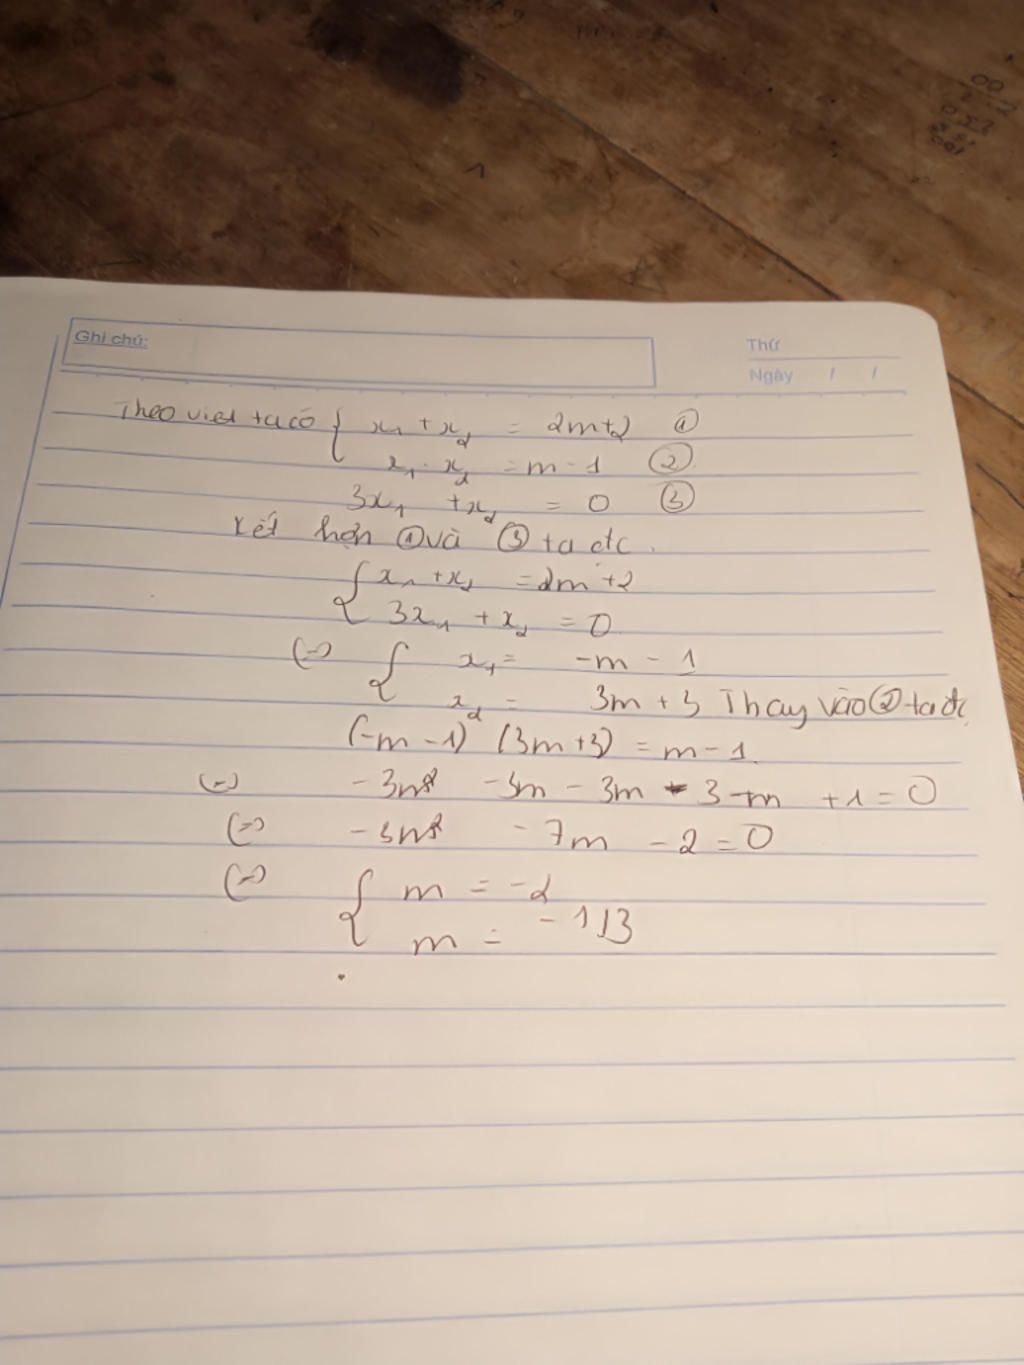 Ghi chú:
Thứ
Ngày / /
Theo viet ta có { x₁ + x₂ = 2m+2 ①
x₁ . x₂ = m - 1 ②
3x₁ + x₂ = 0 ③
Kết hợp ① và ③ ta đc .
{ x₁ + x₂ = 2m + 2
3x₁ + x₂ = 0
(=) { x₁ = -m - 1
x₂ = 3m + 3 Thay vào ② ta đc
(-m - 1) (3m + 3) = m - 1
(=) - 3m² - 3m - 3m - 3 - m + 1 = 0
(=) - 3m² - 7m - 2 = 0
(=) { m = -2
m = -1/3